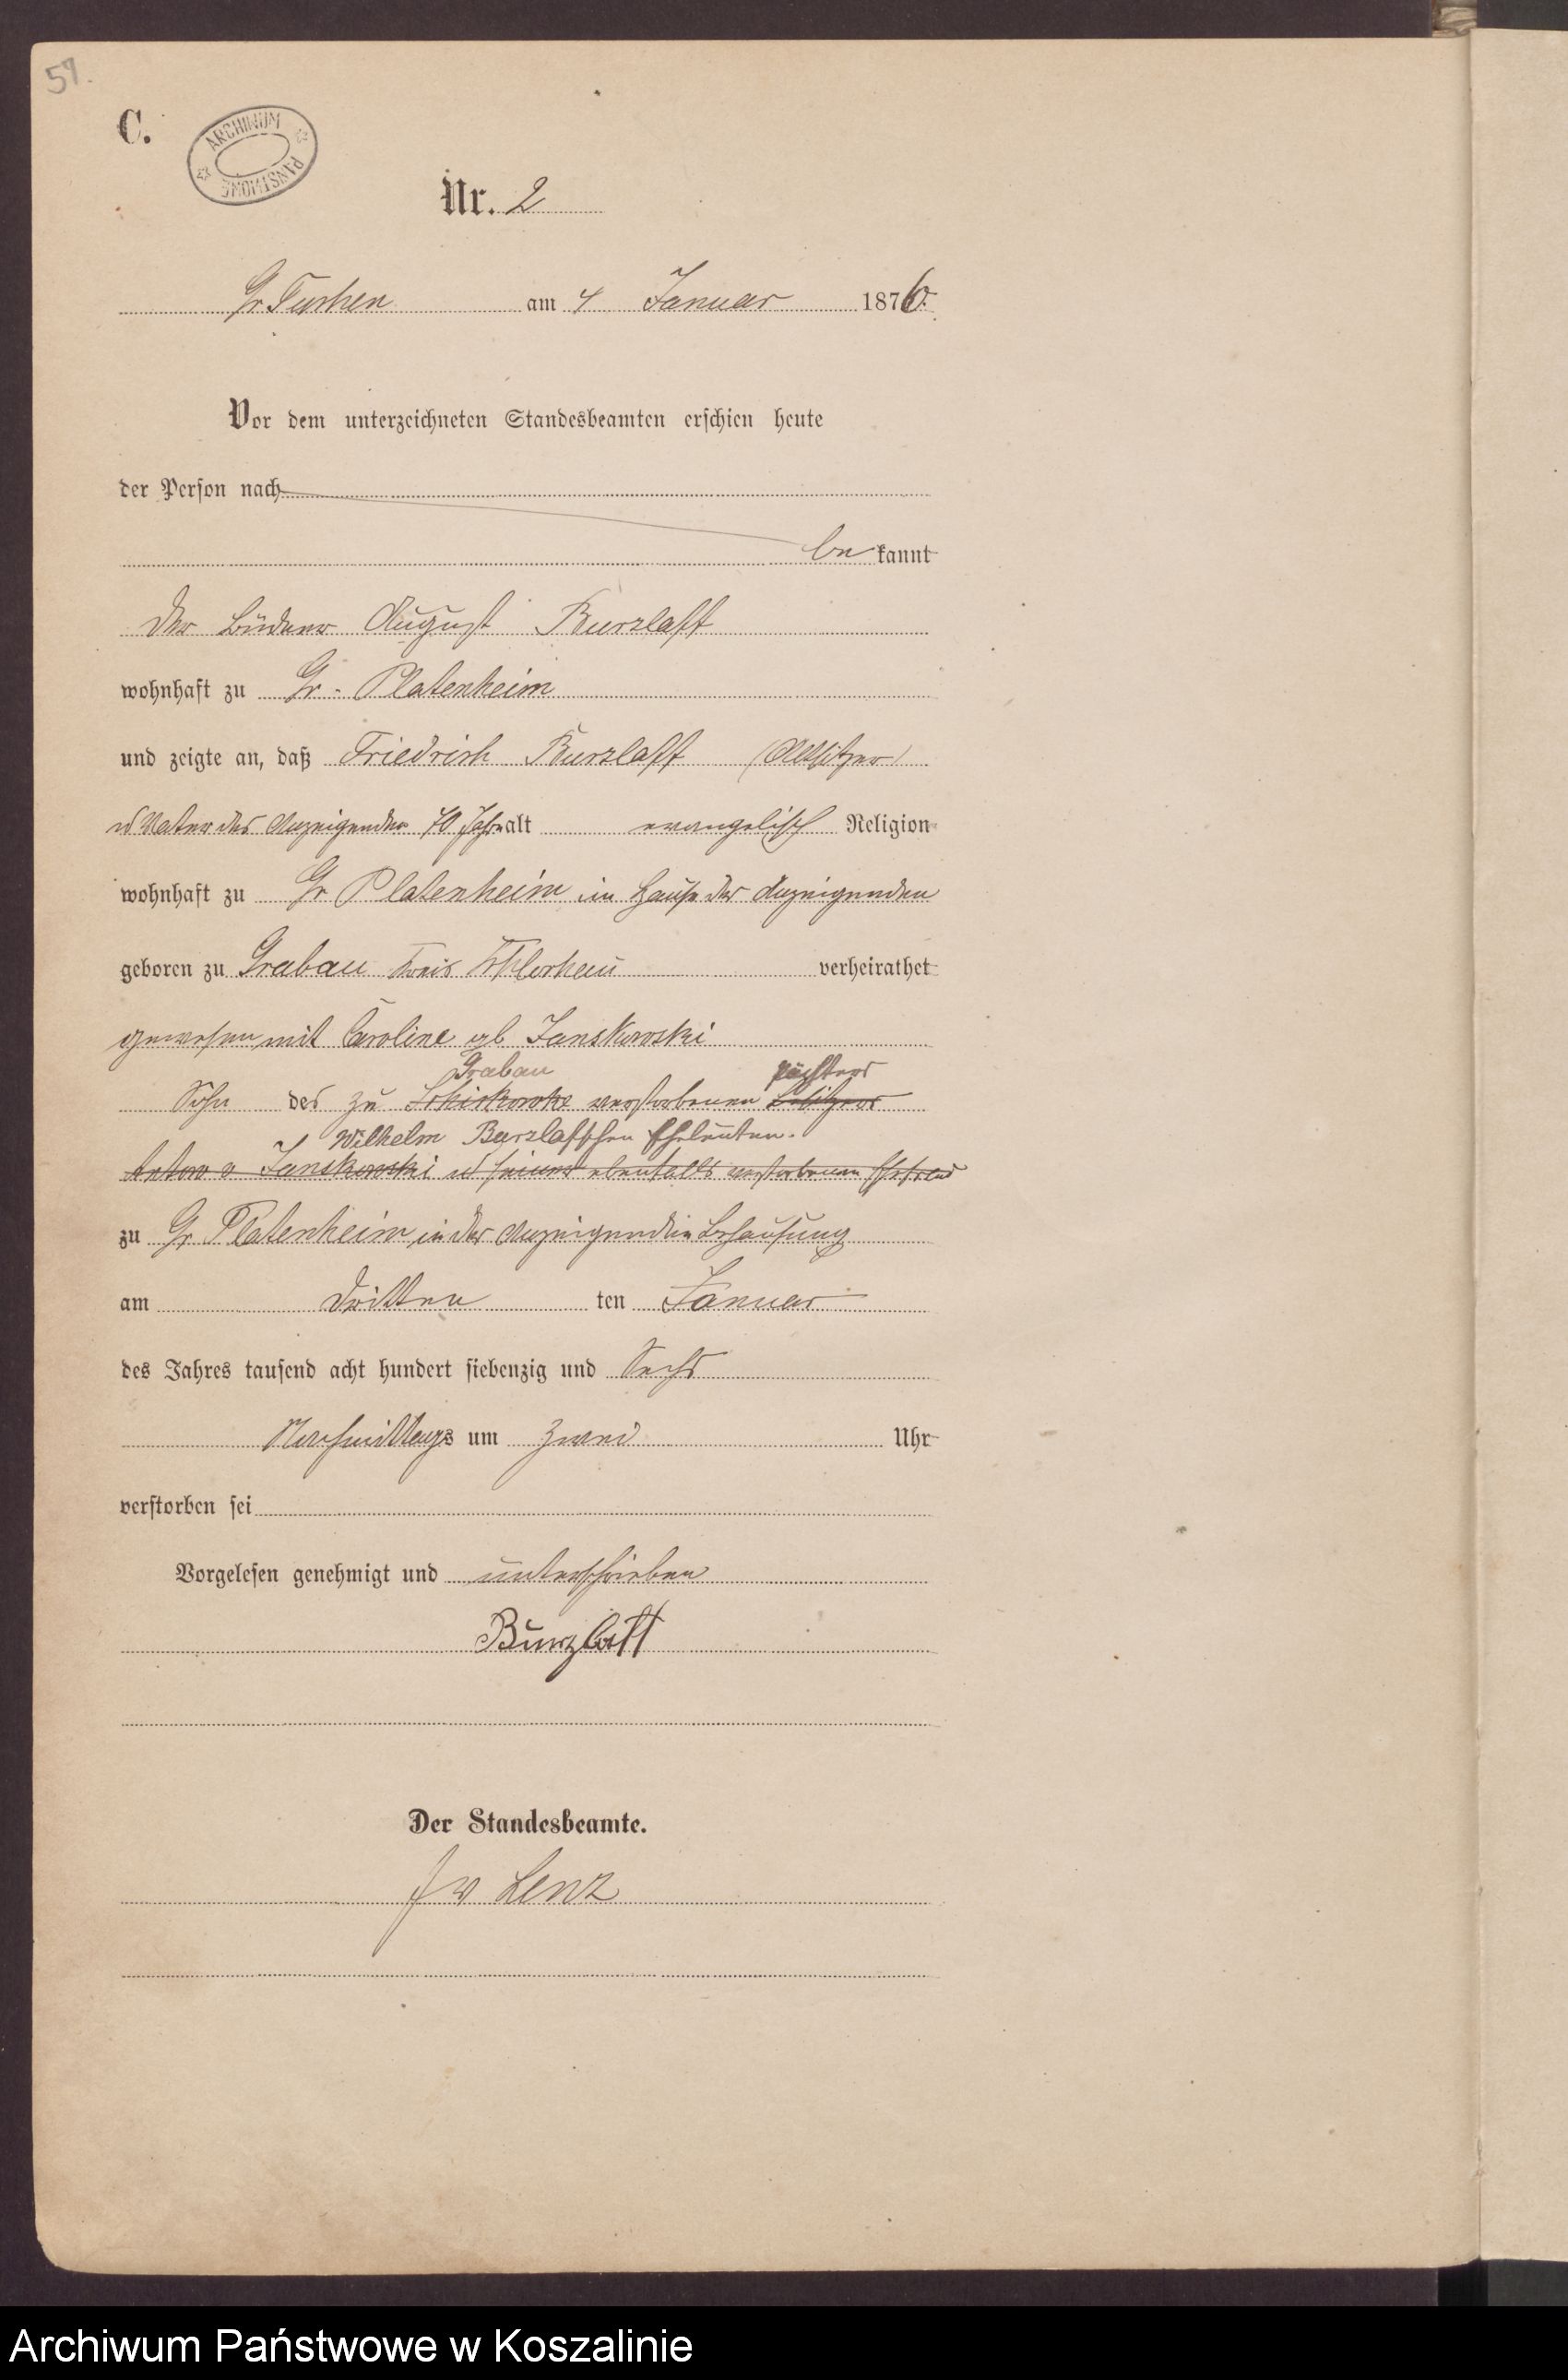 59.
C.
ARCHIWUM PAŃSTWOWE
Nr. 2
Gr Tuchen am 4 Januar 1876.
Vor dem unterzeichneten Standesbeamten erschien heute
der Person nach
be kannt
der Büdner August Burzlaff
wohnhaft zu Gr. Platenheim
und zeigte an, daß Friedrich Burzlaff (Altsitzer)
u Vater des Anzeigenden 70 Jahr alt evangelisch Religion
wohnhaft zu Gr Platenheim im Hause des Anzeigenden
geboren zu Grabau Kreis verheirathet
gewesen mit Caroline gb Janskowski
Grabau pächters
Sohn des zu verstorbenen Besitzers
Wilhelm Burzlaffschen Eheleuten.
Anton v Janskowski u seiner ebenfalls verstorbenen Ehefrau
zu Gr Platenheim in der Behausung
am dritten ten Januar
des Jahres tausend acht hundert siebenzig und Sechs
Nachmittags um zwei Uhr
verstorben sei
Vorgelesen genehmigt und unterschrieben
Burzlaff
Der Standesbeamte.
Lenz
Archiwum Państwowe w Koszalinie